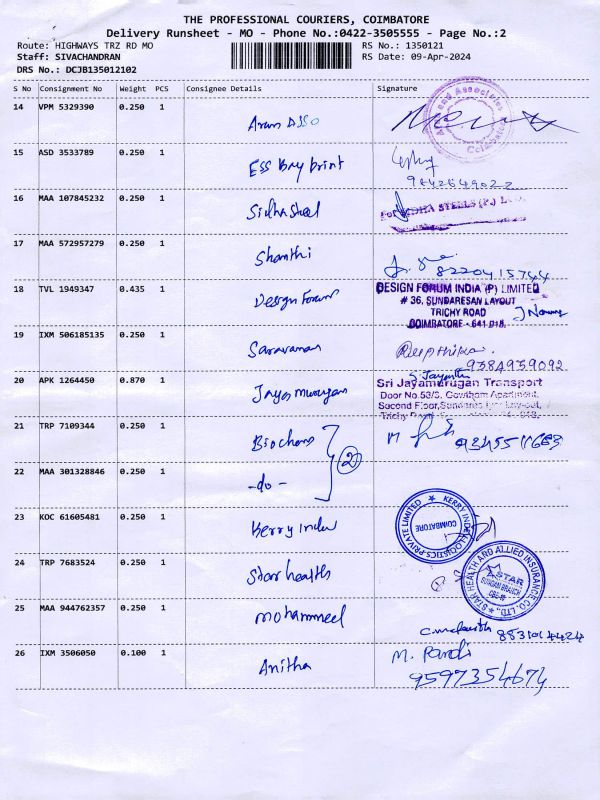 THE PROFESSIONAL COURIERS, COIMBATORE
Delivery Runsheet - MO - Phone No.:0422-3505555 - Page No.:2
Route: HIGHWAYS TRZ RD MO
RS No.: 1350121
Staff: SIVACHANDRAN
RS Date: 09-Apr-2024
DRS No.: DCJB135012102
S No Consignment No Weight PCS Consignee Details Signature
14 VPM 5329390 0.250 1
Arun Asso
and Associates
Coimbatore
15 ASD 3533789 0.250 1
ESS Bay print
9842649022
16 MAA 107845232 0.250 1
Sidha Steel
For SIDHA STEELS (P.)
17 MAA 572957279 0.250 1
Shanthi
8220415744
18 TVL 1949347 0.435 1
Design Forum
DESIGN FORUM INDIA (P) LIMITED
# 36, SUNDARESAN LAYOUT
TRICHY ROAD
COIMBATORE - 641 018.
19 IXM 506185135 0.250 1
Saravanan
Deepthika.
9384959092
20 APK 1264450 0.870 1
Jaya murugan
S. Jayanthi
Sri Jayamurugan Transport
Door No.53/3, Gowtham Apartment,
Second Floor,
21 TRP 7109344 0.250 1
Biochem
2
22 MAA 301328846 0.250 1
-do-
23 KOC 61605481 0.250 1
Kerry Indev
KERRY INDEV LOGISTICS PRIVATE LIMITED
COIMBATORE
24 TRP 7683524 0.250 1
Star health
STAR HEALTH AND ALLIED INSURANCE CO. LTD.,
STAR
25 MAA 944762357 0.250 1
mohammed
26 IXM 3506050 0.100 1
Anitha
M. Pandi
9597354674